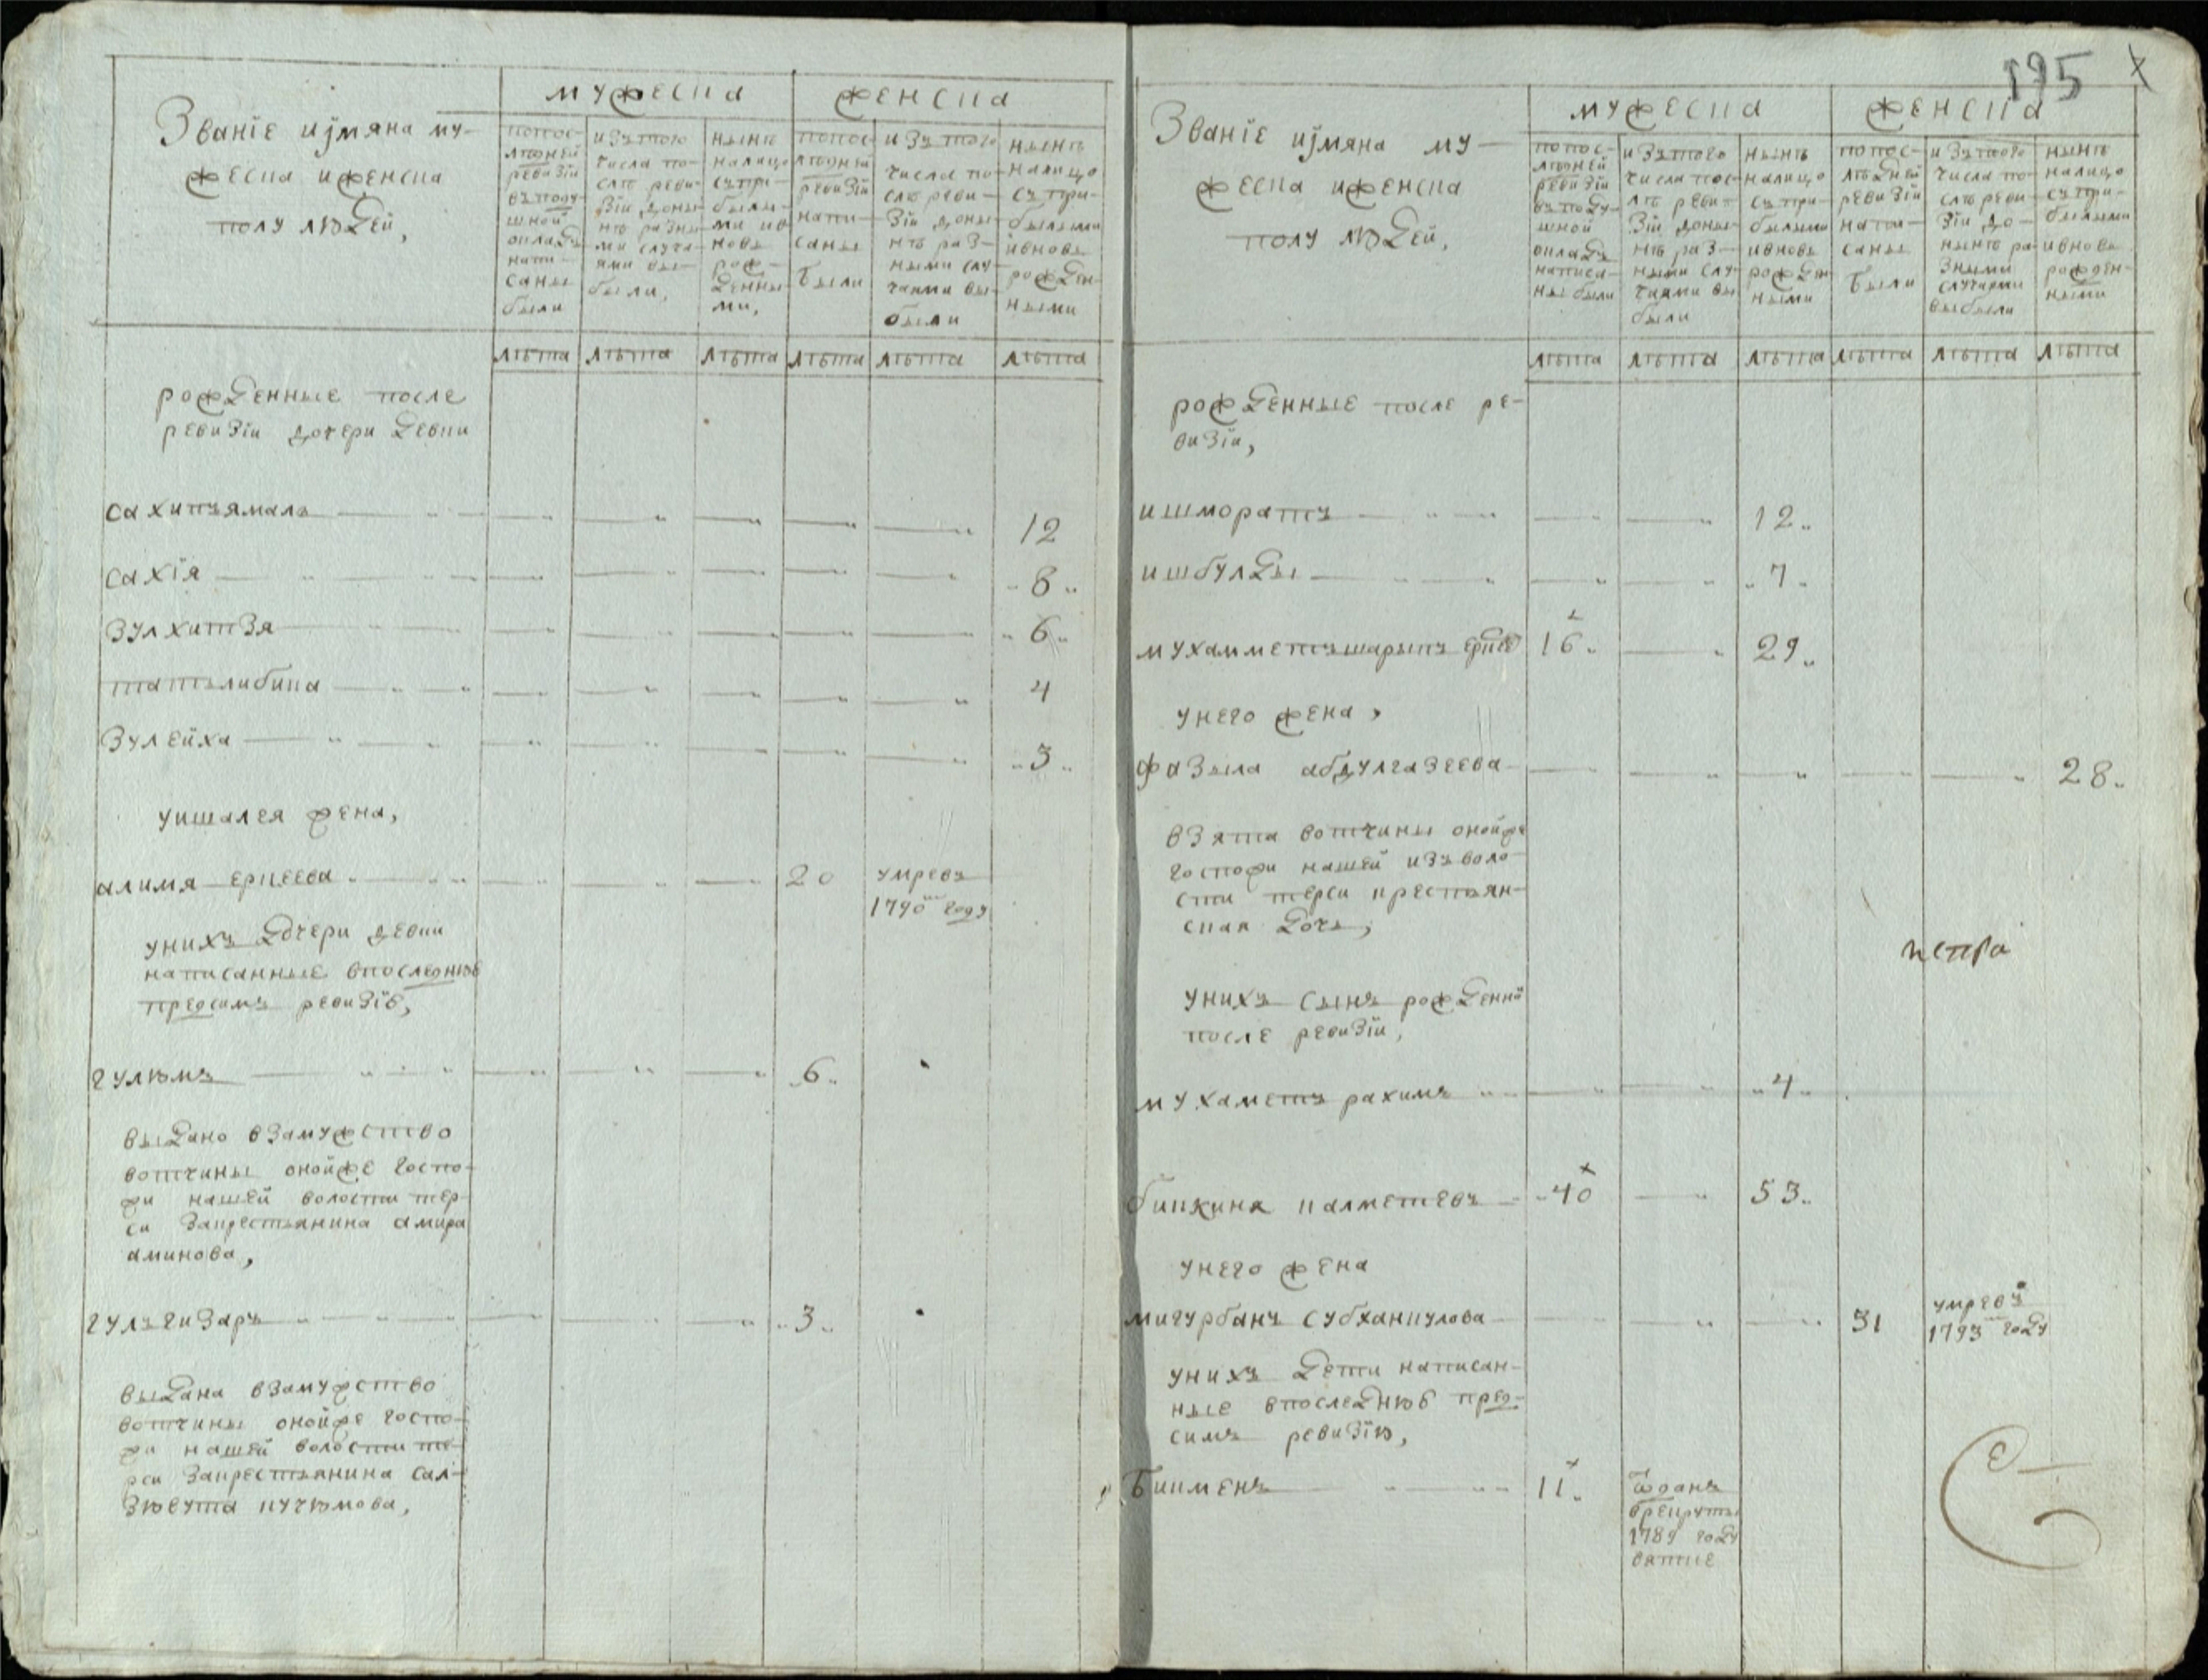 195
Званїе иjмяна му-
жеска иженска
полу людей,
мужеска
женска
попос-
лѣдней
ревизїи
въподу-
шной
окладъ
напи-
саны
были
изътого
числа по-
слѣ реви-
зїи доны-
нѣ разны-
ми случа-
ями вы-
были,
нынѣ
налицо
съпри-
былы-
ми ив
новь
рож-
денны-
ми,
попос-
лѣдней
ревизїи
напи-
саны
были
изътого
числа по-
слѣ реви-
зїи доны-
нѣ раз-
ными слу-
чаями вы-
были
нынѣ
налицо
съпри-
былыми
ивновь
рожден-
ными
лѣта лѣта лѣта лѣта лѣта лѣта
рожденные после
ревизїи дочери девки
сахипъямалъ 12
сахїя 8
зулхитзя 6
татълибика 4
зулейха 3
уишалея жена,
алимя еркеева 20 умревъ
1790 году
унихъ дочери девки
написанные впоследнюю
предсимъ ревизїю,
гулюмъ 6
выдано взамужство
вотчины онойже госпо-
жи нашей волости тер-
си закрестьянина амира
аминова,
гульгизаръ 3
выдана взамужство
вотчины онойже госпо-
жи нашей волости те-
рси закрестьянина сал-
зюеута кучюмова,
Званїе иjмяна му-
жеска иженска
полу людей,
мужеска
женска
попос-
лѣдней
ревизїи
въподу-
шной
окладъ
написа-
ны были
изътого
числа пос-
лѣ реви-
зїи доны-
нѣ раз-
ными слу-
чаями вы
были
нынѣ
налицо
съпри-
былыми
ивновь
рожден-
ными
попос-
лѣдней
ревизїи
напи-
саны
были
изътого
числа по-
слѣ реви-
зїи до-
нынѣ ра-
зными
случаями
выбыли
нынѣ
налицо
съпри-
былыми
ивновь
рожден-
ными
лѣта лѣта лѣта лѣта лѣта лѣта
рожденные после ре-
визїи,
ишморатъ 12
ишбулды 7
мухамметъшарыпъ 16 29
унего жена,
фазыла абдулгазеева 28
взята вотчины онойже
госпожи нашей изъ воло-
сти терси крестьян-
ская дочь,
искра
унихъ сынъ рожденнй
после ревизїи,
мухаметъ рахимъ 4
биккиня калметевъ 40 53
унего жена
мигурбанъ субханкулова 31 умревъ
1793 году
унихъ дети написан-
ные впоследнюю пред-
симъ ревизїю,
Бикменъ 11 ѿданъ
врекруты
1789 году